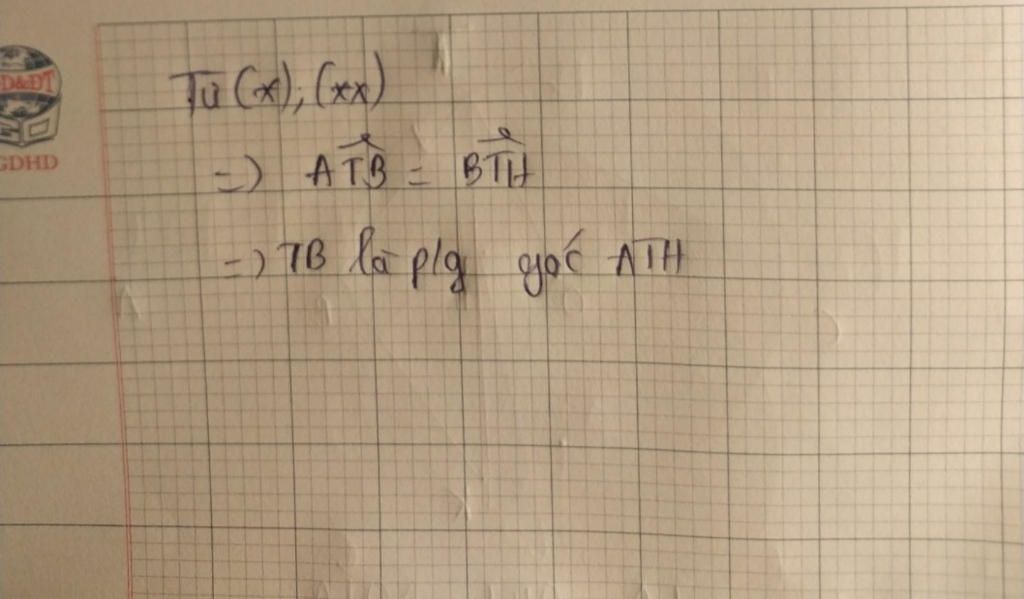 D&ĐT
GDHD
Từ (*), (**)
=) ATB = BTH
=) TB là p/g góc ATH